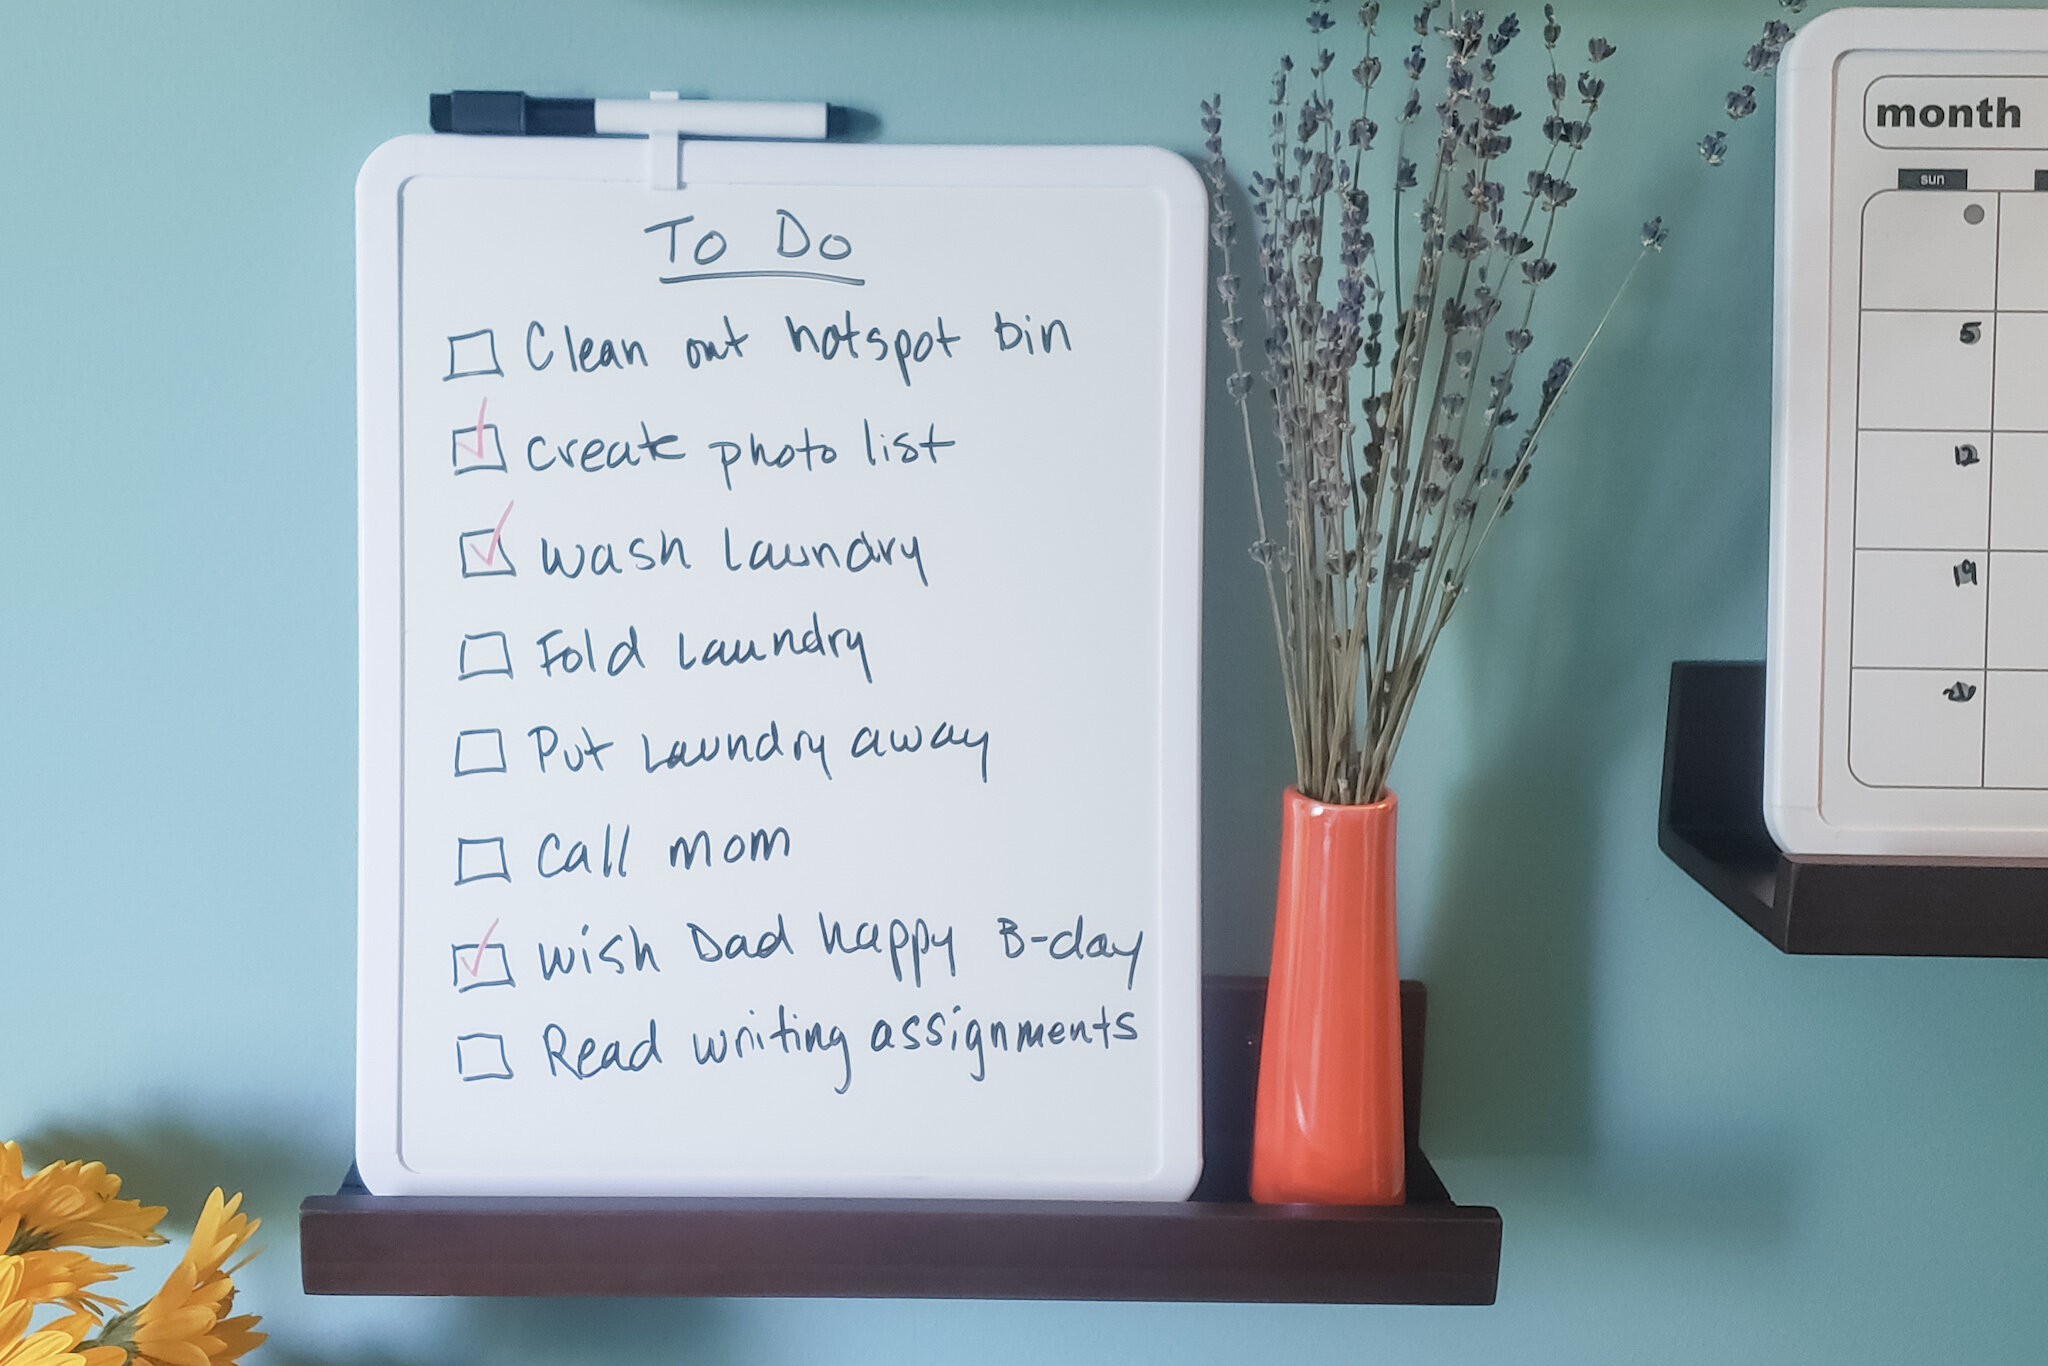 To Do
Clean out hotspot bin
Create photo list
Wash Laundry
Fold Laundry
Put Laundry away
Call mom
Wish Dad happy B-day
Read writing assignments
month
sun
5
12
19